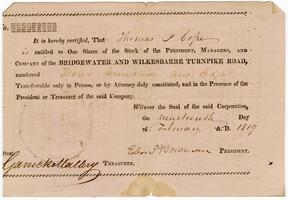 It is hereby certified, That Thomas P. Cope
is entitled to One Share of the Stock of the PRESIDENT, MANAGERS, AND
COMPANY OF THE BRIDGEWATER AND WILKESBARRE TURNPIKE ROAD,
numbered Four hundred and Eight
Transferrable only in Person, or by Attorney duly constituted, and in the Presence of the
President or Treasurer of the said Company.
Witness the Seal of the said Corporation,
the nineteenth Day
of February A.D. 1819
PRESIDENT.
Garrick Mallery TREASURER.